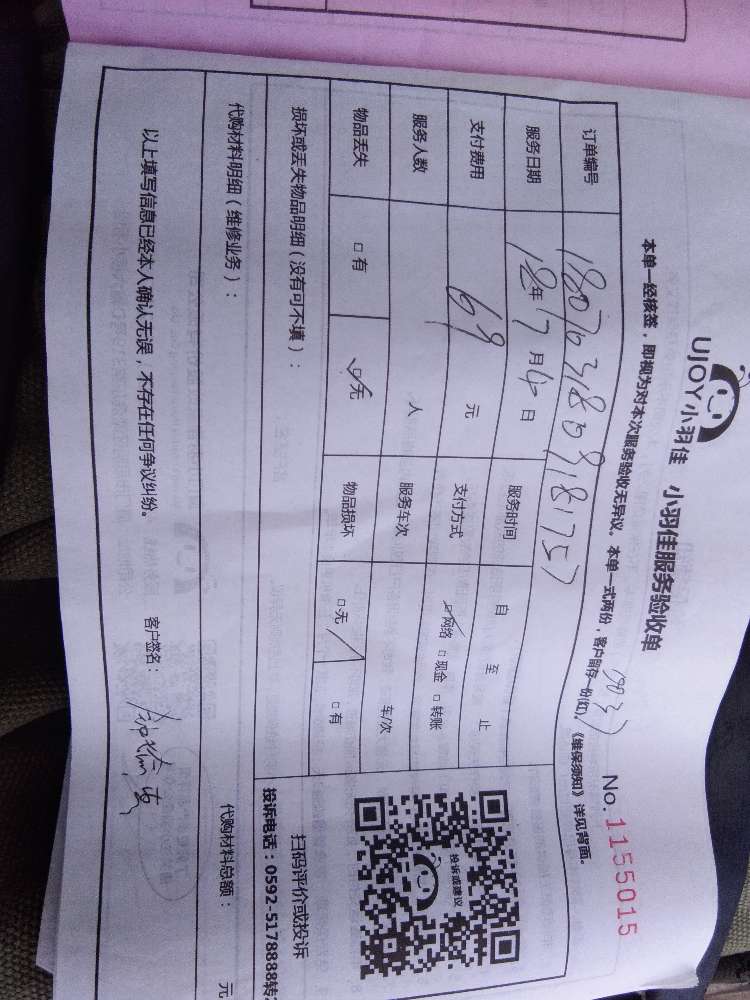 UJOY小羽佳 小羽佳服务验收单
No.1155015
本单一经核签，即视为对本次服务验收无异议。本单一式两份，客户留存一份(红)。《维保须知》详见背面。
订单编号 1807031809181757
服务日期 18年7月4日 服务时间 自 至 止
支付费用 69 元 支付方式 □网络 □现金 □转账
服务人数 人 服务车次 车/次
物品丢失 □有 □无 物品损坏 □无 □有
投诉或建议
扫码评价或投诉
投诉电话：0592-5178888转
损坏或丢失物品明细（没有可不填）：
代购材料明细（维修业务）： 代购材料总额： 元
以上填写信息已经本人确认无误，不存在任何争议纠纷。 客户签名：